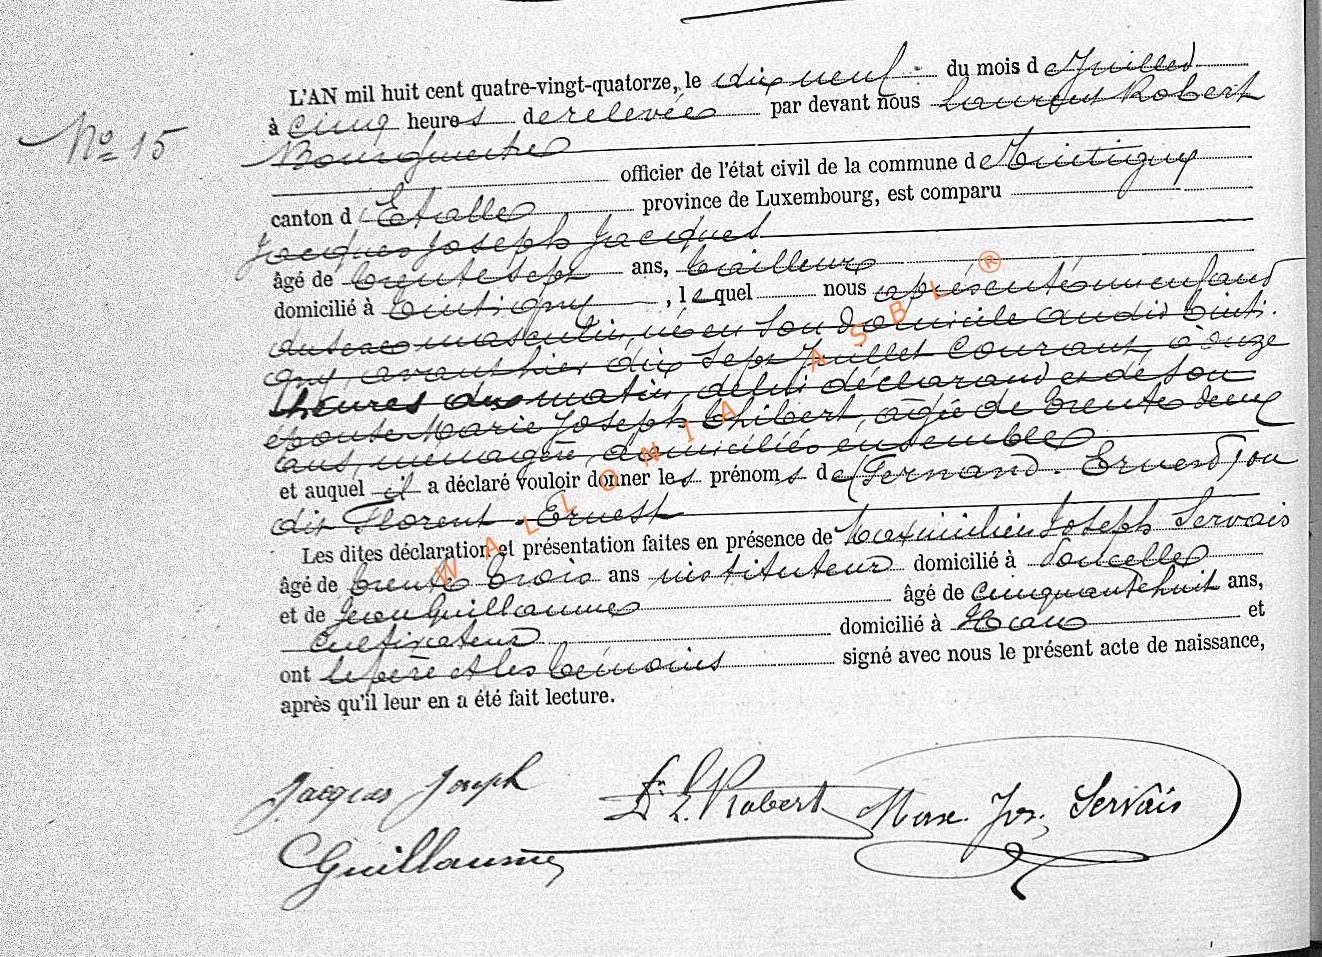 L'AN mil huit cent quatre-vingt-quatorze, le dix neuf du mois de Juillet
à cinq heures de relevée par devant nous Laurent Robert
Nº 15
Bourgmestre
officier de l'état civil de la commune de Tintigny
canton d'Etalle province de Luxembourg, est comparu
Jacques Joseph Jacques
âgé de trente sept ans, tailleur
domicilié à Tintigny, lequel nous a présenté un enfant
du sexe masculin, né en son domicile audit Tinti-
gny, avant hier dix sept Juillet courant, à onze
heures du matin, de lui déclarant et de son
épouse Marie Joseph Thibert, âgée de trente deux
ans, ménagère, domiciliés ensemble
et auquel il a déclaré vouloir donner les prénoms de Fernand. Ernest Jou
dit Florent. Ernest
Les dites déclaration et présentation faites en présence de Maximilien Joseph Servais
âgé de trente trois ans instituteur domicilié à
et de Jean Guillaume âgé de cinquante huit ans,
cultivateur domicilié à Han et
ont le père et les témoins signé avec nous le présent acte de naissance,
après qu'il leur en a été fait lecture.
WALLONIA ASBL ®
Jacques Joseph L. Robert Max. Jos. Servais
Guillaume